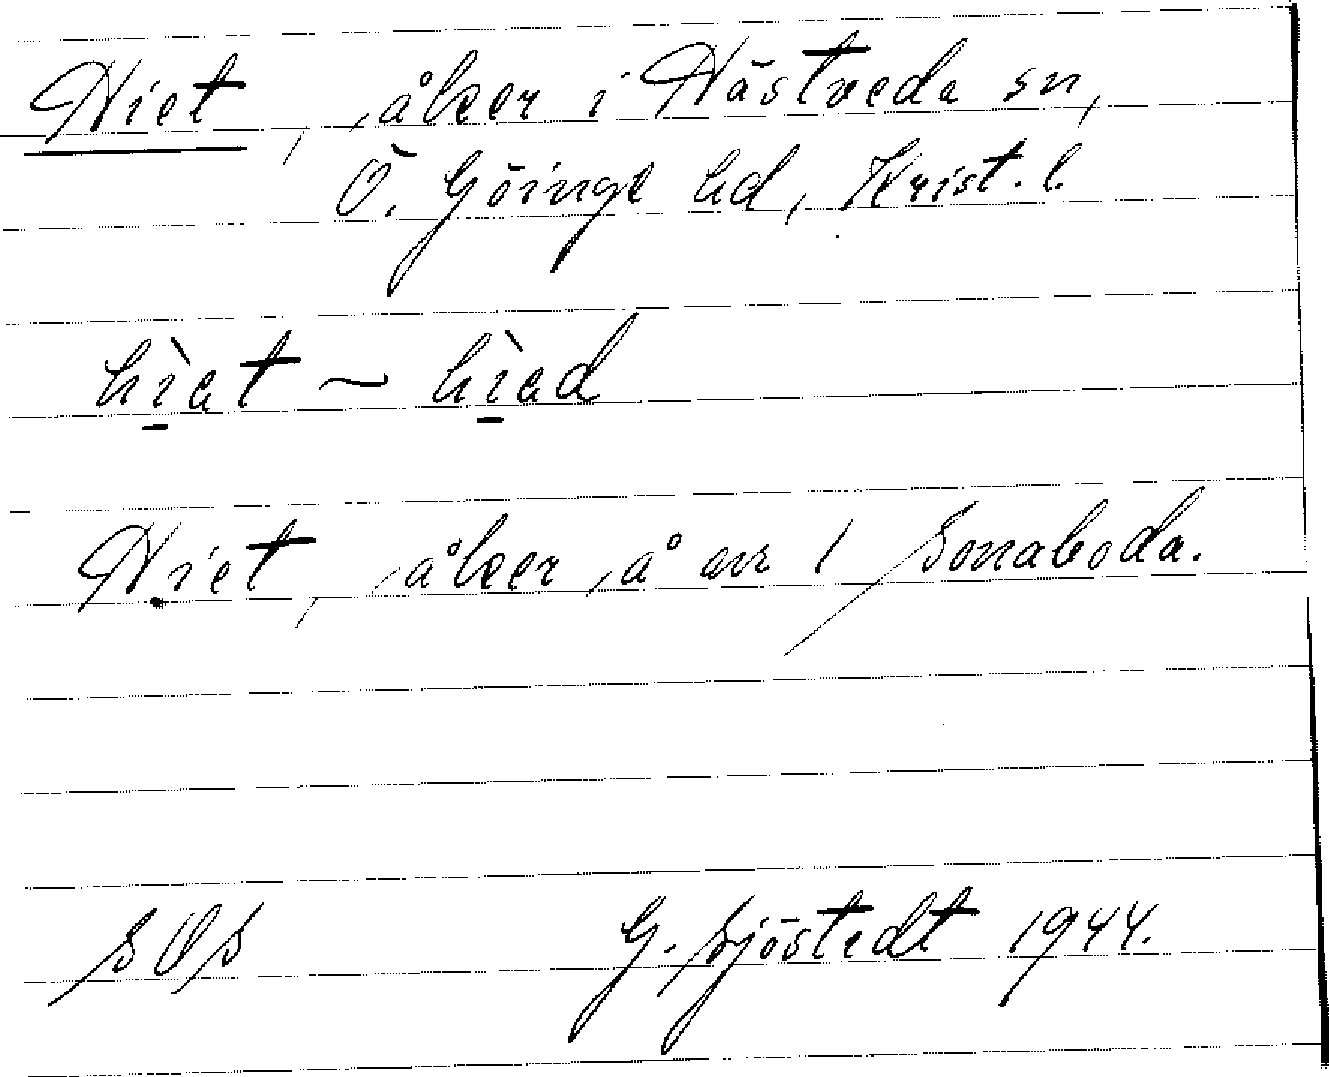 Hiet, åker i Hästveda sn,
Ö. Göinge hd, Krist. l.
hìət ~ hìəd
Hiet, åker å nr 1 Sonaboda.
SOS
G. Sjöstedt 1944.